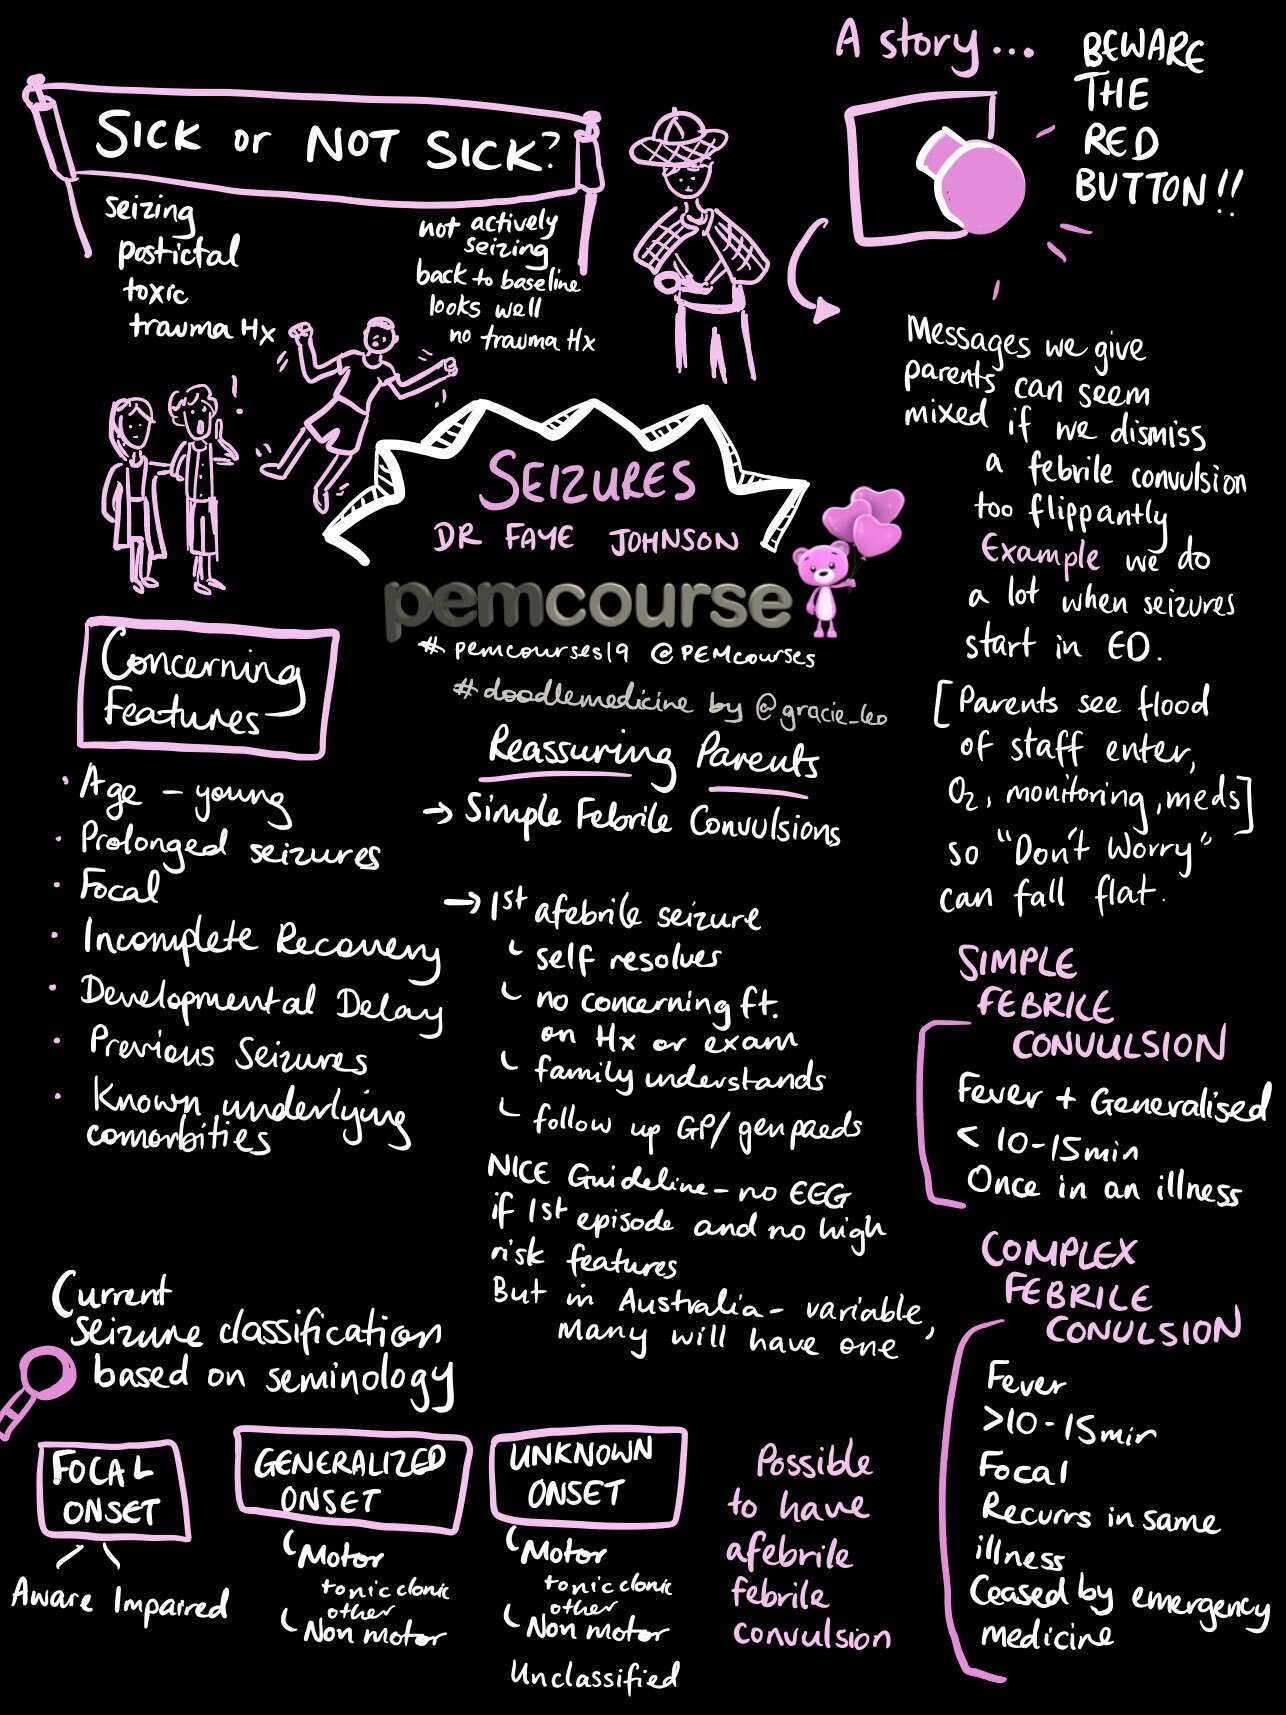 SICK or NOT SICK?
seizing
postictal
toxic
trauma Hx
not actively
seizing
back to baseline
looks well
no trauma Hx
A story...
BEWARE
THE
RED
BUTTON!!
Messages we give
parents can seem
mixed if we dismiss
a febrile convulsion
too flippantly
Example we do
a lot when seizures
start in ED.
[Parents see flood
of staff enter,
O2, monitoring, meds]
so "Don't Worry"
can fall flat.
SEIZURES
DR FAYE JOHNSON
pemcourse
# pemcourses19 @PEMcourses
#doodlemedicine by @gracie_leo
Concerning
Features
· Age - young
· Prolonged seizures
· Focal
· Incomplete Recovery
· Developmental Delay
· Previous Seizures
· Known underlying
comorbities
Reassuring Parents
→ Simple Febrile Convulsions
→ 1st afebrile seizure
self resolves
no concerning ft.
on Hx or exam
family understands
follow up GP/gen paeds
NICE Guideline - no EEG
if 1st episode and no high
risk features
But in Australia - variable,
many will have one
SIMPLE
FEBRILE
CONVULSION
Fever + Generalised
< 10-15min
Once in an illness
COMPLEX
FEBRILE
CONVULSION
Fever
>10-15min
Focal
Recurrs in same
illness
Ceased by emergency
medicine
Current
seizure classification
based on seminology
FOCAL
ONSET
Aware Impaired
GENERALIZED
ONSET
Motor
tonic clonic
other
Non motor
UNKNOWN
ONSET
Motor
tonic clonic
other
Non motor
Unclassified
Possible
to have
afebrile
febrile
convulsion